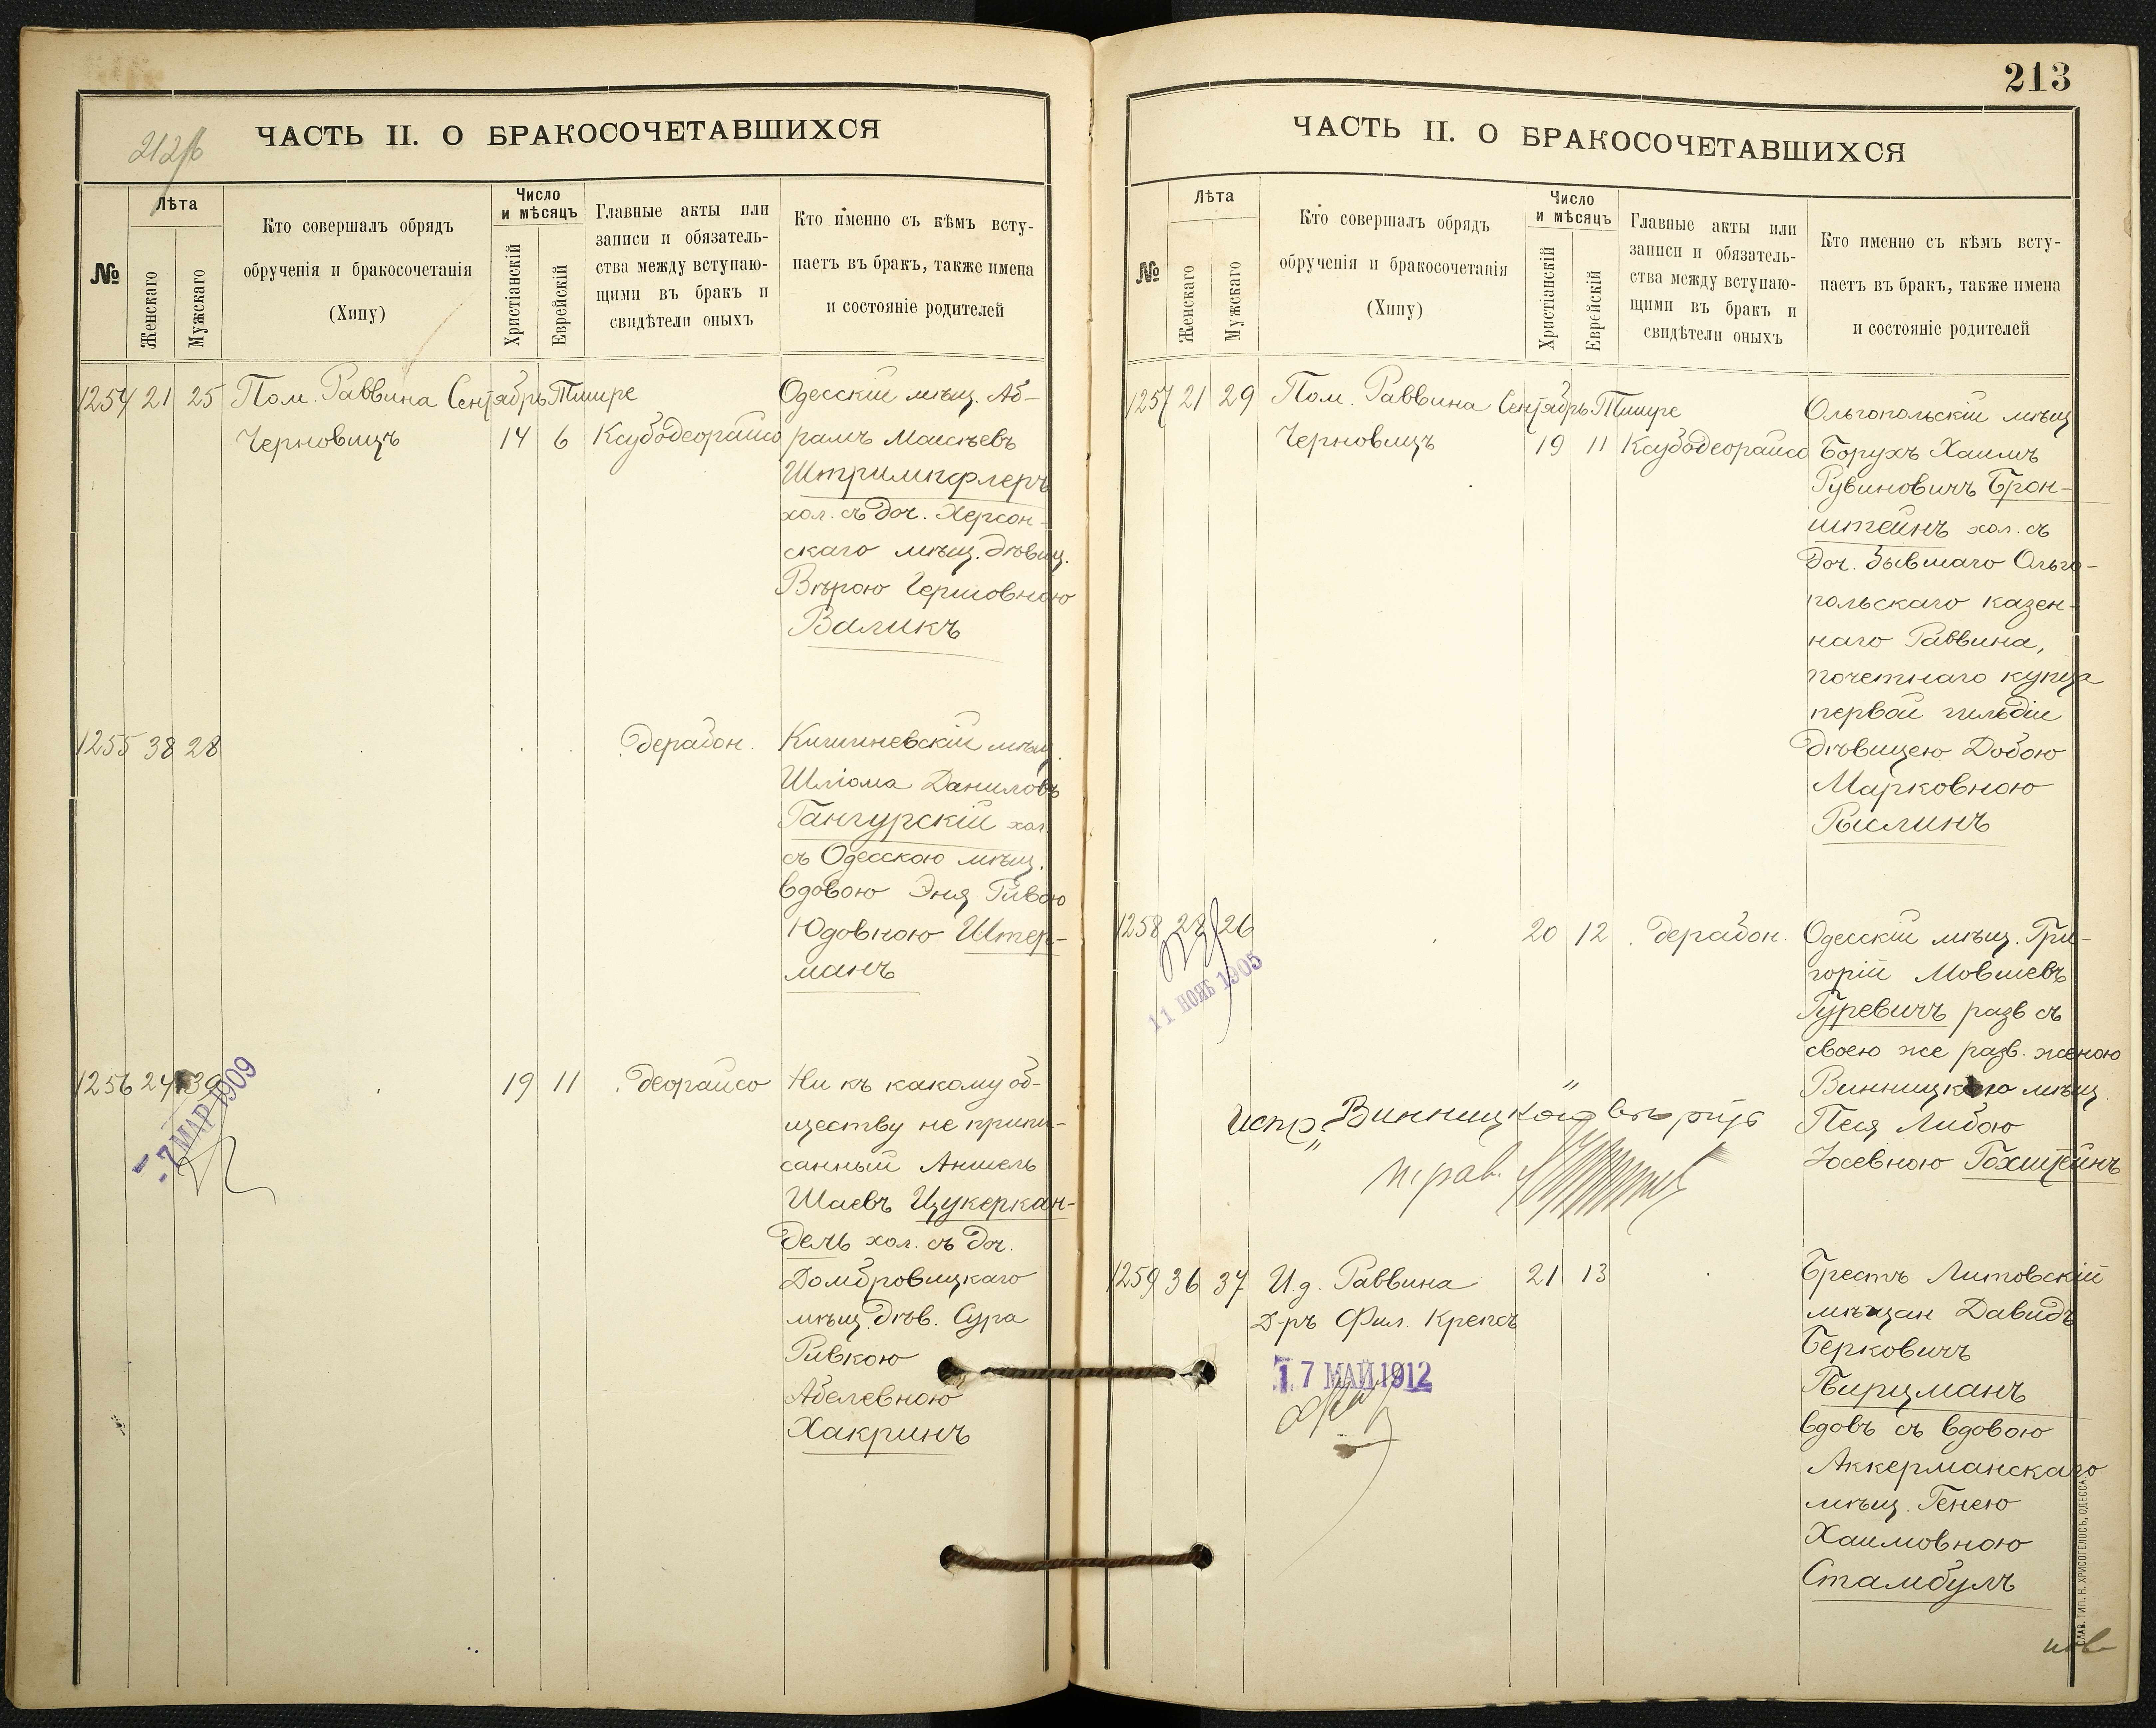 212/б
ЧАСТЬ II. О БРАКОСОЧЕТАВШИХСЯ
№
Лѣта
Женскаго
Мужскаго
Кто совершалъ обрядъ
обрученія и бракосочетанія
(Хипу)
Число
и мѣсяцъ
Христіанскій
Еврейскій
Главные акты или
записи и обязатель-
ства между вступаю-
щими въ бракъ и
свидѣтели оныхъ
Кто именно съ кѣмъ всту-
паетъ въ бракъ, также имена
и состояніе родителей
1254 21 25 Пом. Раввина Сентябрь Тишре Одесскій мѣщ. Аб-
Черновицъ 14 6 Ксубодеорайсо рамъ Моисѣевъ
Штримпфлеръ
хол. съ доч. Херсон-
скаго мѣщ. дѣвиц.
Вѣрою Гершовною
Валикъ
1255 38 28 " дерабон. Кишиневскій мѣщ.
Шліома Даниловъ
Гангурскій хол.
съ Одесскою мѣщ.
вдовою Эня Ривою
Юдовною Штер-
манъ
1256 24 39 19 11 " деорайсо Ни къ какому об-
ществу не припи-
санный Аншель
Шаевъ Цукеркан-
дель хол. съ доч.
Домбровицкаго
мѣщ. дѣв. Сура
Ривкою
Абелевною
Хакринъ
- 7 МАР 1909
213
ЧАСТЬ II. О БРАКОСОЧЕТАВШИХСЯ
№
Лѣта
Женскаго
Мужскаго
Кто совершалъ обрядъ
обрученія и бракосочетанія
(Хипу)
Число
и мѣсяцъ
Христіанскій
Еврейскій
Главные акты или
записи и обязатель-
ства между вступаю-
щими въ бракъ и
свидѣтели оныхъ
Кто именно съ кѣмъ всту-
паетъ въ бракъ, также имена
и состояніе родителей
1257 21 29 Пом. Раввина Сентябрь Тишре Ольгопольскій мѣщ
Черновицъ 19 11 Ксубодеорайсо Борухъ Хаимъ
Рувиновичъ Брон-
штейнъ хол. съ
доч. бывшаго Ольго-
польскаго казен-
наго Раввина,
почетнаго купца
первой гильдіи
дѣвицею Добою
Марковною
Рыслинъ
1258 28 26 20 12 " дерабон. Одесскій мѣщ. Гри-
горій Мовшевъ
Гуревичъ разв съ
своею же разв. женою
Винницкою мѣщ.
Песя Либою
Іосевною Гохштейнъ
11 НОЯБ 1905
Испр. "Винницкою" вѣрить
1259 36 37 И.д. Раввина 21 13 Брестъ Литовскій
Д-ръ Фил. Крепсъ мѣщан Давидъ
Берковичъ
Пвирцманъ
вдовъ съ вдовою
Аккерманскаго
мѣщ. Генею
Хаимовною
Стамбулъ
17 МАЙ 1912
СЛАВ. ТИП. Н. ХРИСОГЕЛОСЪ, ОДЕССА.